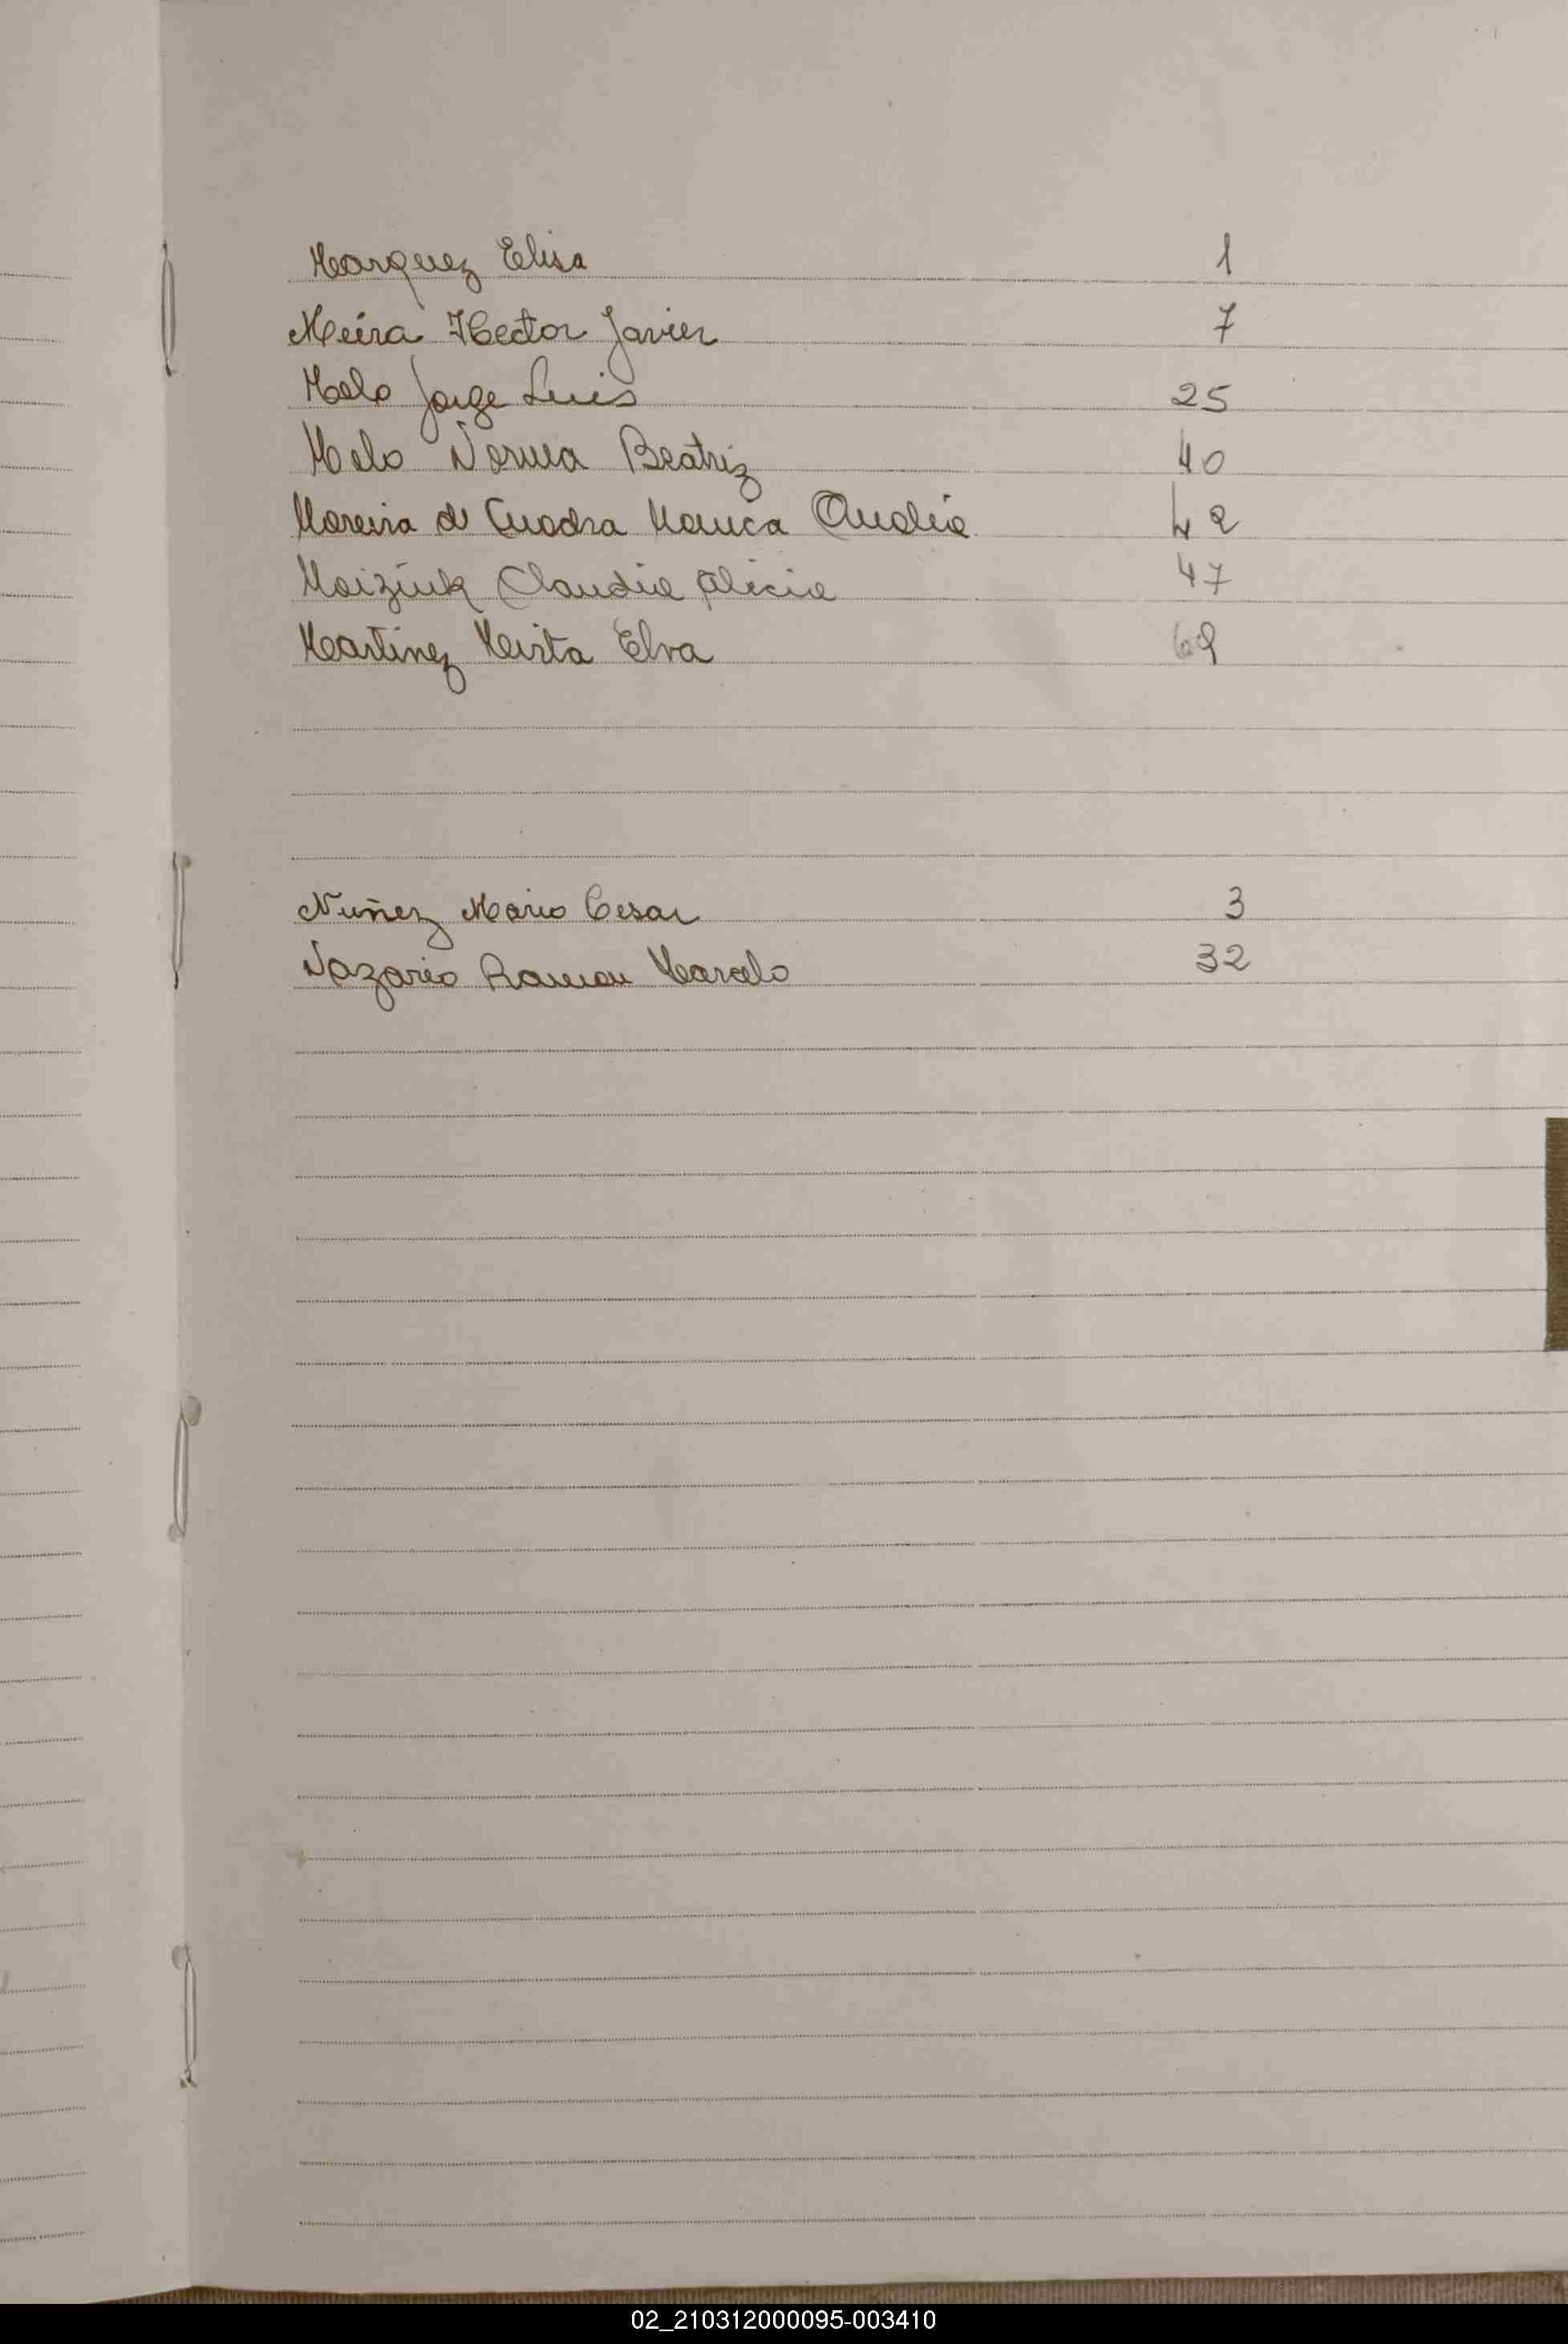 Marquez Elisa 1
Meira Hector Javier 7
Melo Jorge Luis 25
Melo Norma Beatriz 40
Moreira de Cuadra Monica Analia 42
Moiziuk Claudia Alicia 47
Martinez Mirta Elva 69
Nuñez Mario Cesar 3
Nazario Ramon Marcelo 32
02_210312000095-003410